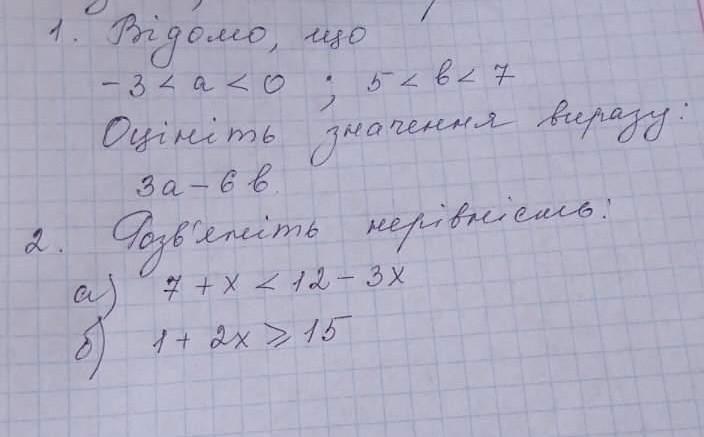 1. Відомо, що
-3 < a < 0 ; 5 < b < 7
Оцініть значення виразу:
3a - 6b.
2. Розв'яжіть нерівність:
а) 7 + x < 12 - 3x
б) 1 + 2x ≥ 15